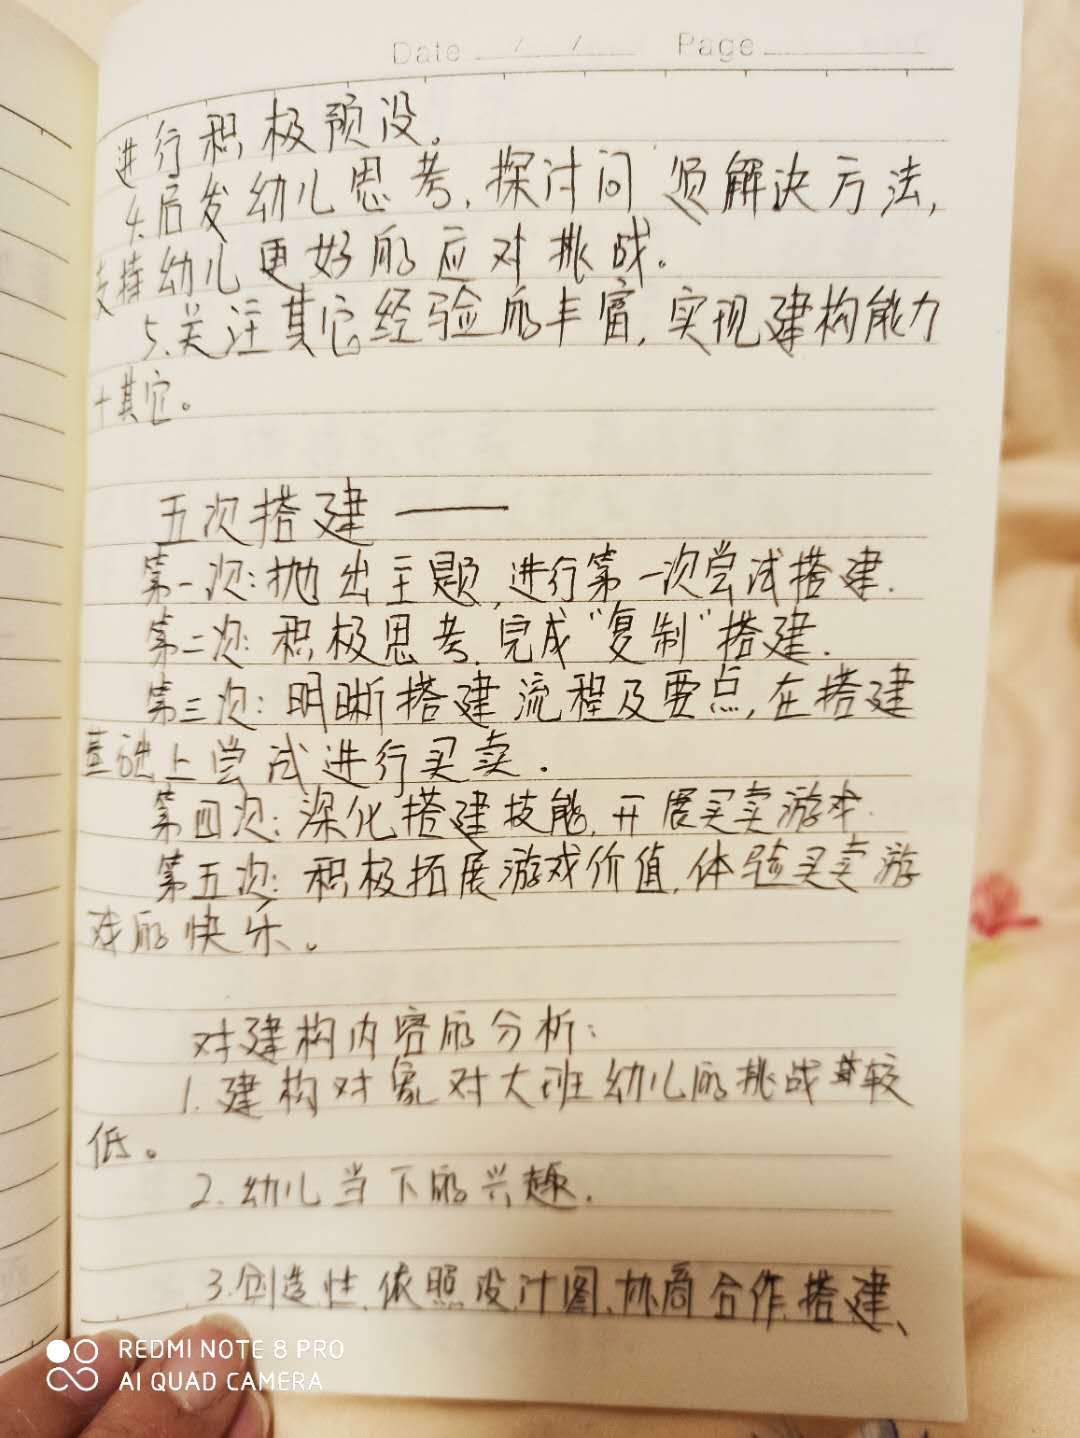 Date / / Page
进行积极预设。
4.启发幼儿思考,探讨问题解决方法,
支持幼儿更好的应对挑战。
5.关注其它经验的丰富,实现建构能力
+其它。
五次搭建——
第一次:抛出主题,进行第一次尝试搭建.
第二次:积极思考,完成"复制"搭建.
第三次:明晰搭建流程及要点,在搭建
基础上尝试进行买卖.
第四次:深化搭建技能,开展买卖游戏.
第五次:积极拓展游戏价值,体验买卖游
戏的快乐。
对建构内容的分析:
1.建构对象对大班幼儿的挑战较
低。
2.幼儿当下的兴趣.
3.创造性、依照设计图、协商合作搭建、
REDMI NOTE 8 PRO
AI QUAD CAMERA